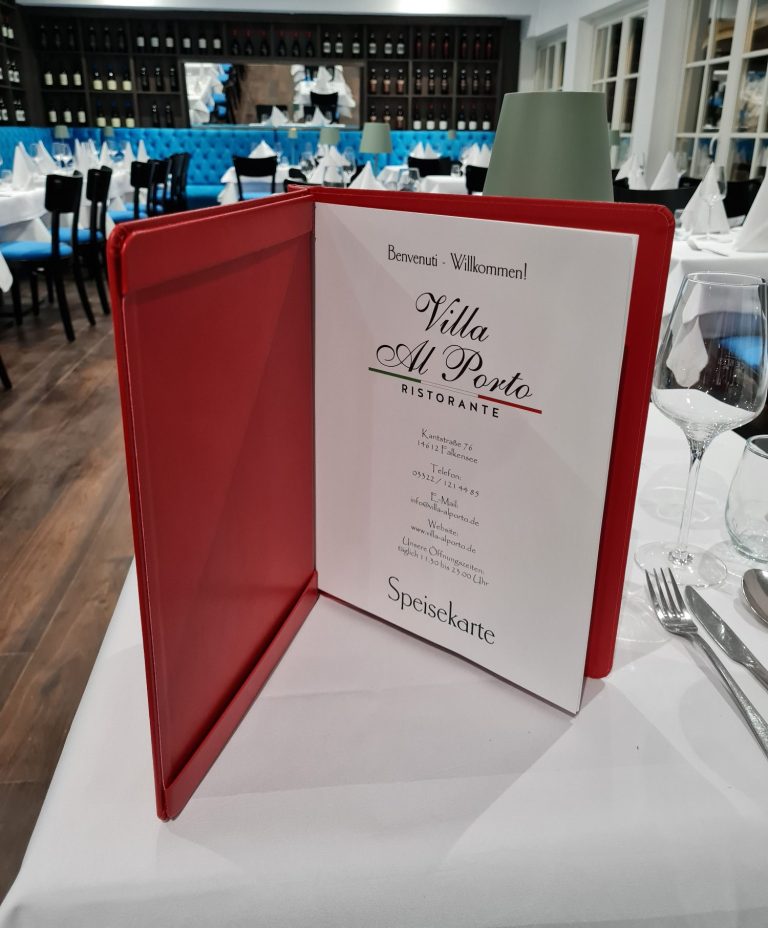 Benvenuti - Willkommen!
Villa
Al Porto
RISTORANTE
Kantstraße 76
14612 Falkensee
Telefon:
03322 / 121 44 85
E-Mail:
info@villa-alporto.de
Website:
www.villa-alporto.de
Unsere Öffnungszeiten:
täglich 11:30 bis 23:00 Uhr
Speisekarte